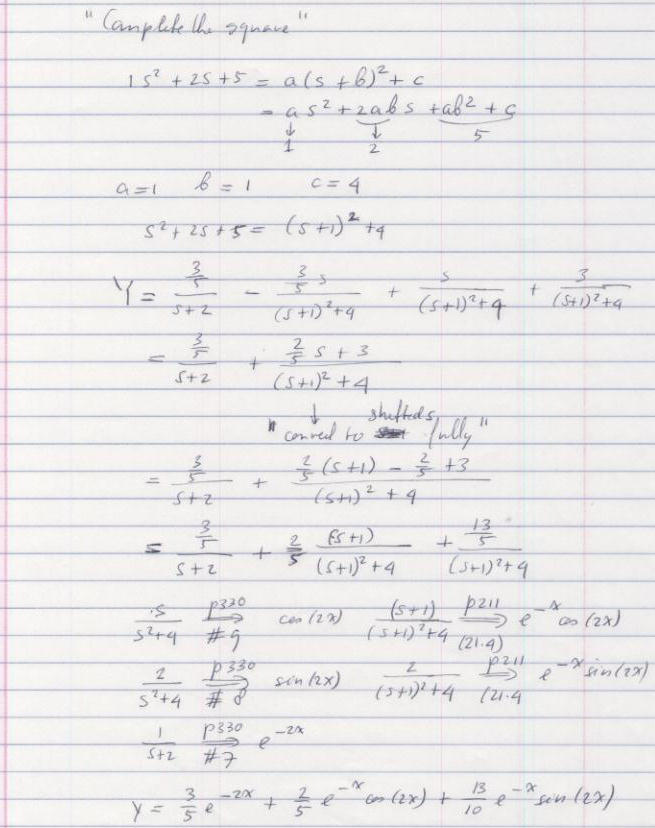 "Complete the square"
1s² + 2s + 5 = a(s + b)² + c
= as² + 2abs + ab² + c
↓ ↓ 5
1 2
a=1 b = 1 c = 4
s² + 2s + 5 = (s+1)² + 4
Y = (3/5)/(s+2) − (3/5 s)/((s+1)²+4) + s/((s+1)²+4) + 3/((s+1)²+4)
= (3/5)/(s+2) + (2/5 s + 3)/((s+1)²+4)
↓ shifted s
"convert to fully"
= (3/5)/(s+2) + (2/5 (s+1) − 2/5 + 3)/((s+1)² + 4)
= (3/5)/(s+2) + 2/5 (s+1)/((s+1)²+4) + (13/5)/((s+1)²+4)
s/(s²+4) p330 ⇒ #9 cos(2x) (s+1)/((s+1)²+4) p211 ⇒ (21.4) e^{-x} cos(2x)
2/(s²+4) p330 ⇒ #8 sin(2x) 2/((s+1)²+4) p211 ⇒ (21.4 e^{-x} sin(2x)
1/(s+2) p330 ⇒ #7 e^{-2x}
y = 3/5 e^{-2x} + 2/5 e^{-x} cos(2x) + 13/10 e^{-x} sin(2x)